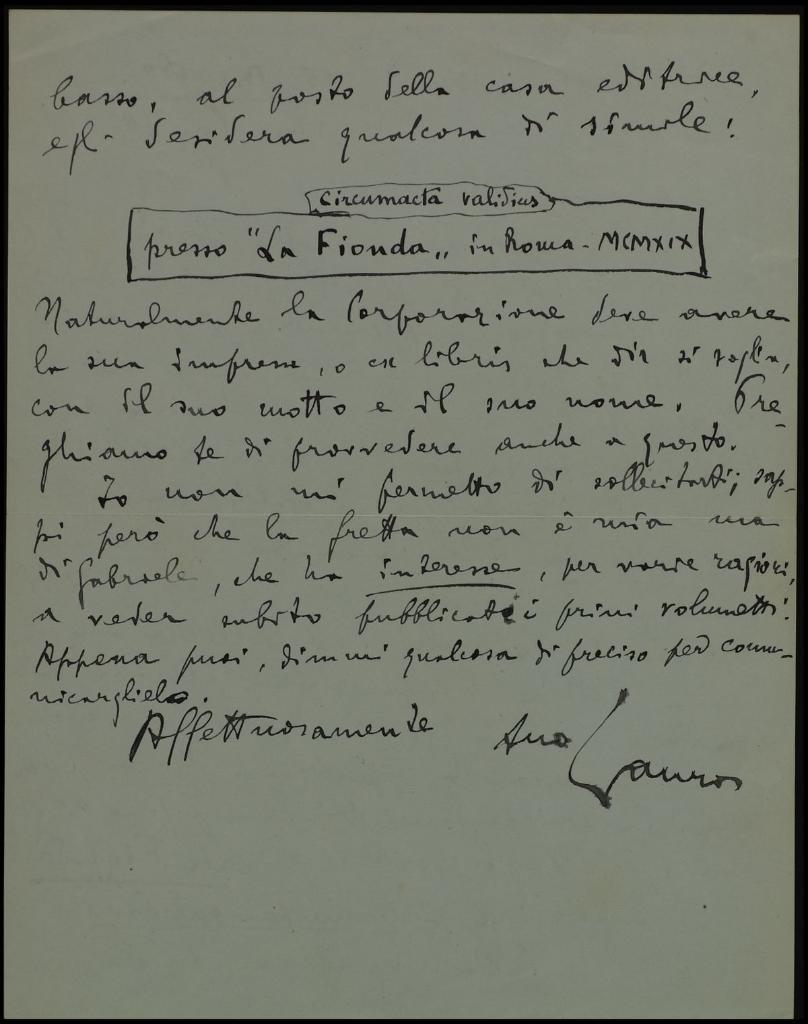 basso, al posto della casa editrice,
egli desidera qualcosa di simile:
circumacta validius
presso "La Fionda„ in Roma - MCMXIX
Naturalmente la Corporazione deve avere
la sua impresa, o ex libris che dir si voglia,
con il suo motto e il suo nome. Pre-
ghiamo te di provvedere anche a questo.
Io non mi permetto di sollecitarti; sap-
pi però che la fretta non è mia ma
di Gabriele, che ha interesse, per varie ragioni,
a veder subito pubblicati i primi volumetti.
Appena puoi, dimmi qualcosa di preciso per comu-
nicarglielo.
Affettuosamente tuo